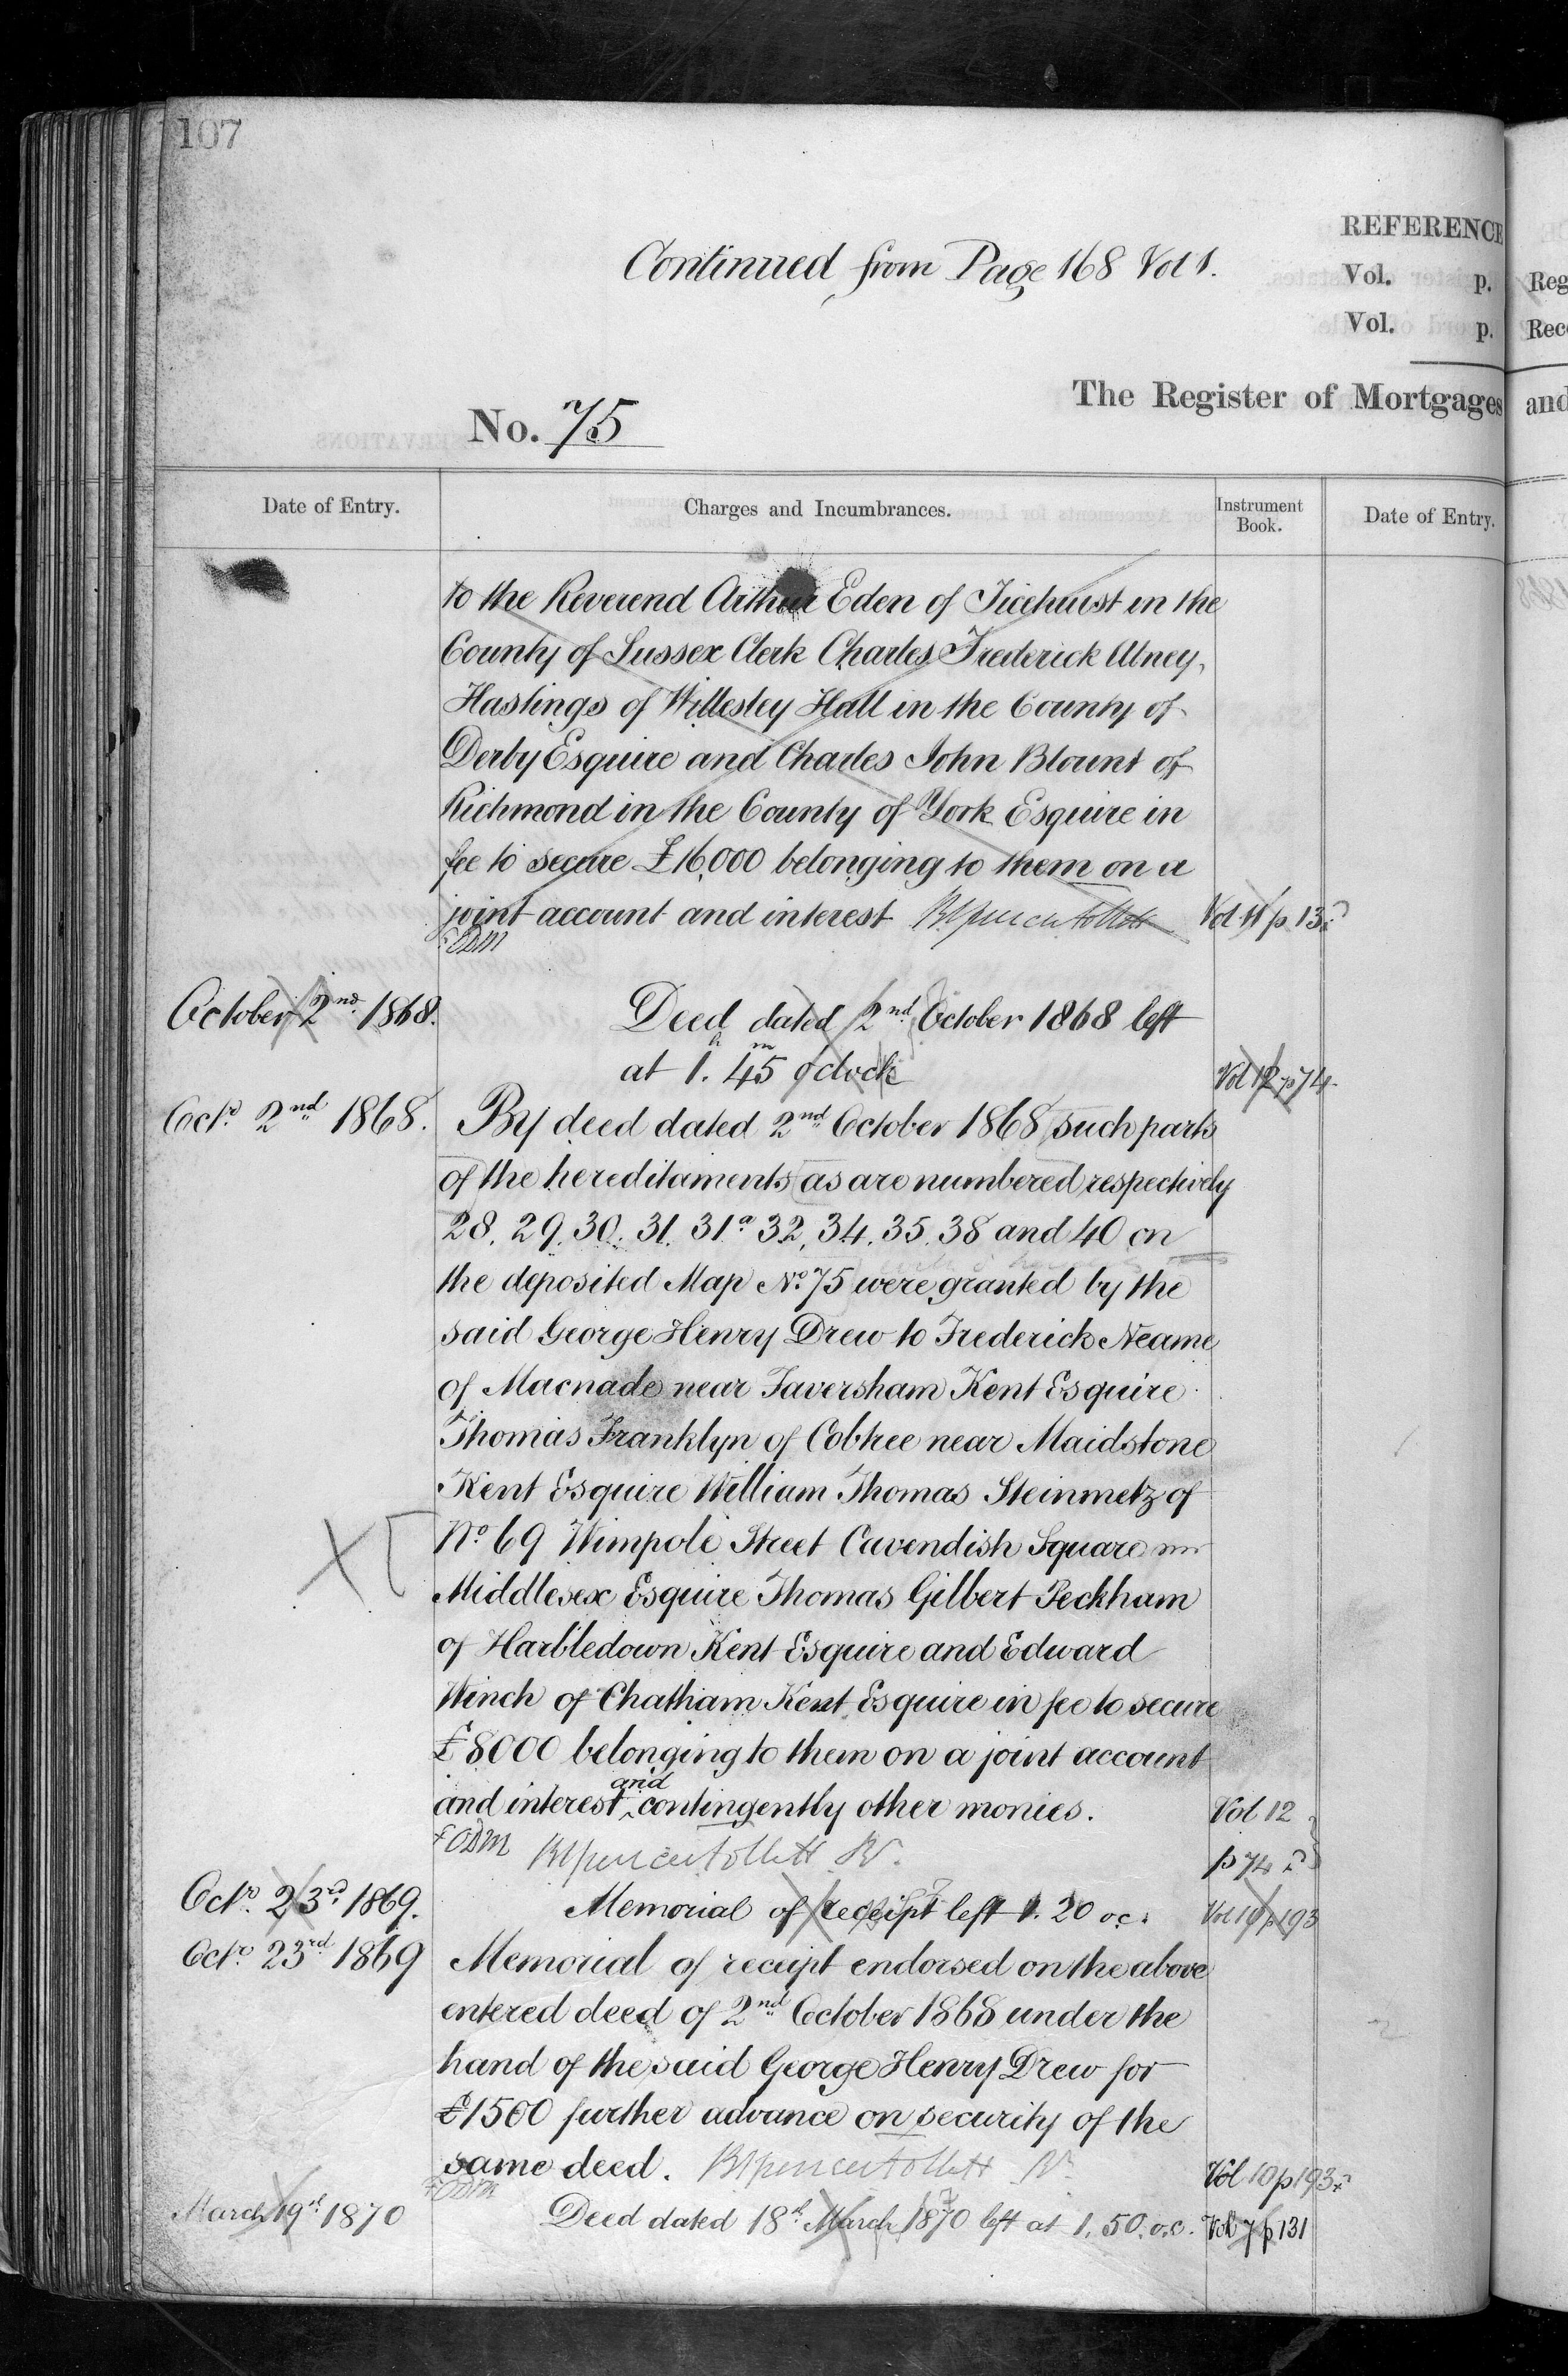 107
Continued from Page 168 Vol 1.
REFERENCE
Vol. p.
Vol. p.
Reg
Rec
No. 75
The Register of Mortgages and
Date of Entry.
Charges and Incumbrances.
Instrument Book.
Date of Entry.
to the Reverend Arthur Eden of Ticehurst in the
County of Sussex Clerk Charles Frederick Abney,
Hastings of Willesley Hall in the County of
Derby Esquire and Charles John Blount of
Richmond in the County of York Esquire in
fee to secure £16,000 belonging to them on a
joint account and interest Vol 11 p 13
October 2nd 1868. Deed dated 2nd October 1868 left
at 1.h 45m o'clock Vol 12 p 74
Octr. 2nd 1868. By deed dated 2nd October 1868 such parts
of the hereditaments as are numbered respectively
28. 29. 30. 31. 31a 32, 34. 35. 38 and 40 on
the deposited Map No. 75 were granted by the
said George Henry Drew to Frederick Neame
of Macnade near Faversham Kent Esquire
Thomas Franklyn of Cobtree near Maidstone
Kent Esquire William Thomas Steinmetz of
No. 69 Wimpole Street Cavendish Square
Middlesex Esquire Thomas Gilbert Peckham
of Harbledown Kent Esquire and Edward
Winch of Chatham Kent Esquire in fee to secure
£8000 belonging to them on a joint account
and interest and contingently other monies. Vol 12
p 74
Octr. 23d 1869. Memorial of receipt left 1. 20 o.c. Vol 10 p 193
Octr. 23rd 1869 Memorial of receipt endorsed on the above
entered deed of 2nd October 1868 under the
hand of the said George Henry Drew for
£1500 further advance on security of the
same deed. Vol 10 p 193
March 19th 1870 Deed dated 18th March 1870 left at 1. 50. o.c. Vol 7 p 131